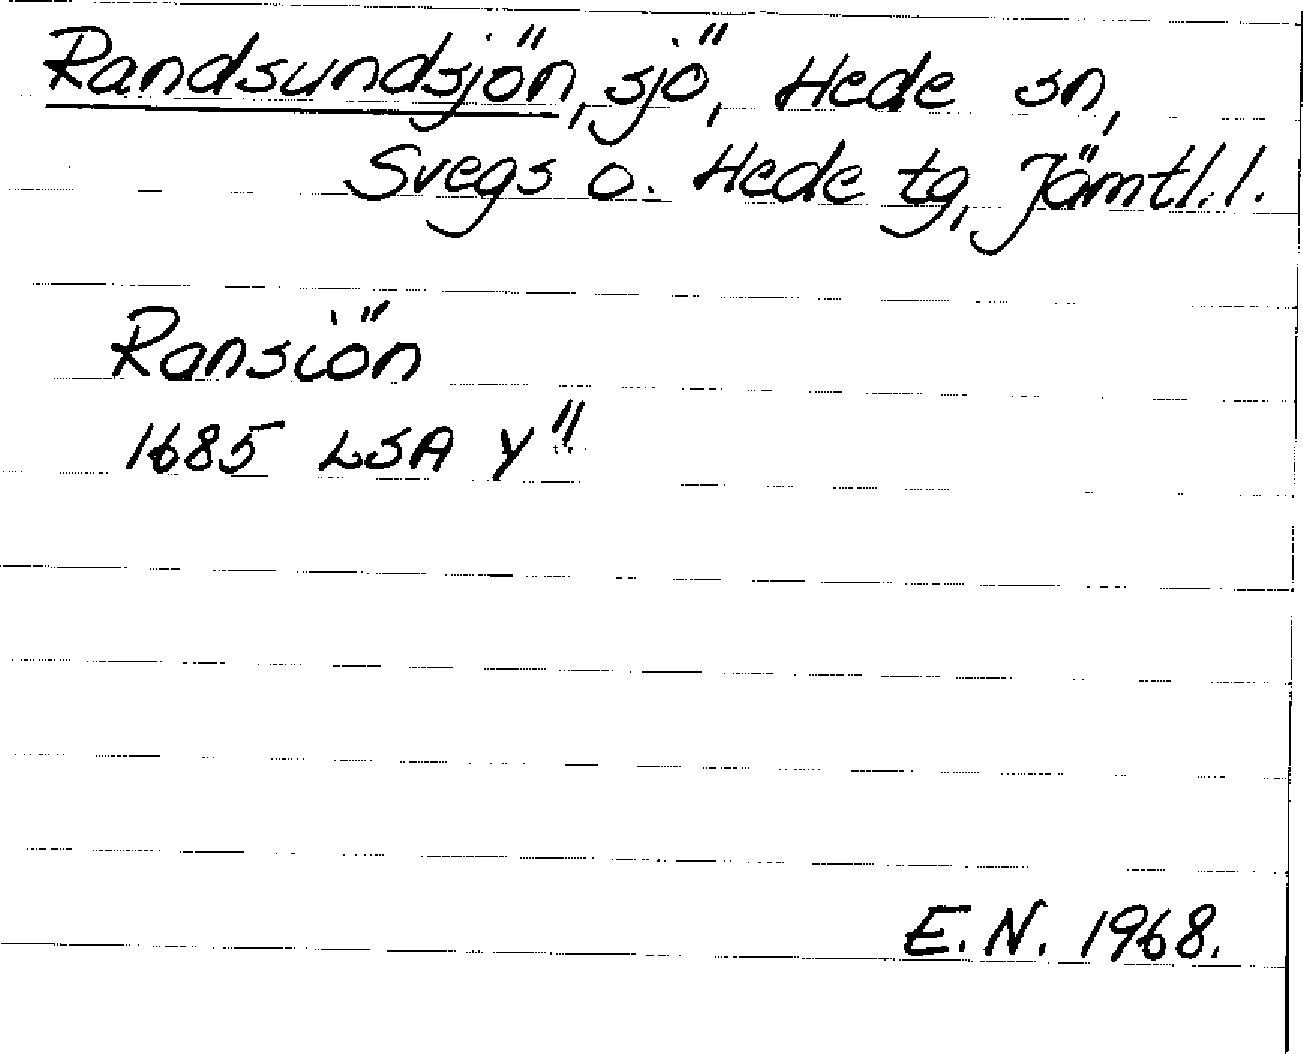 Randsundsjön, sjö, Hede sn,
Svegs o. Hede tg, Jämtl. l.
Ransiön
1685 LSA Y"
E. N. 1968.